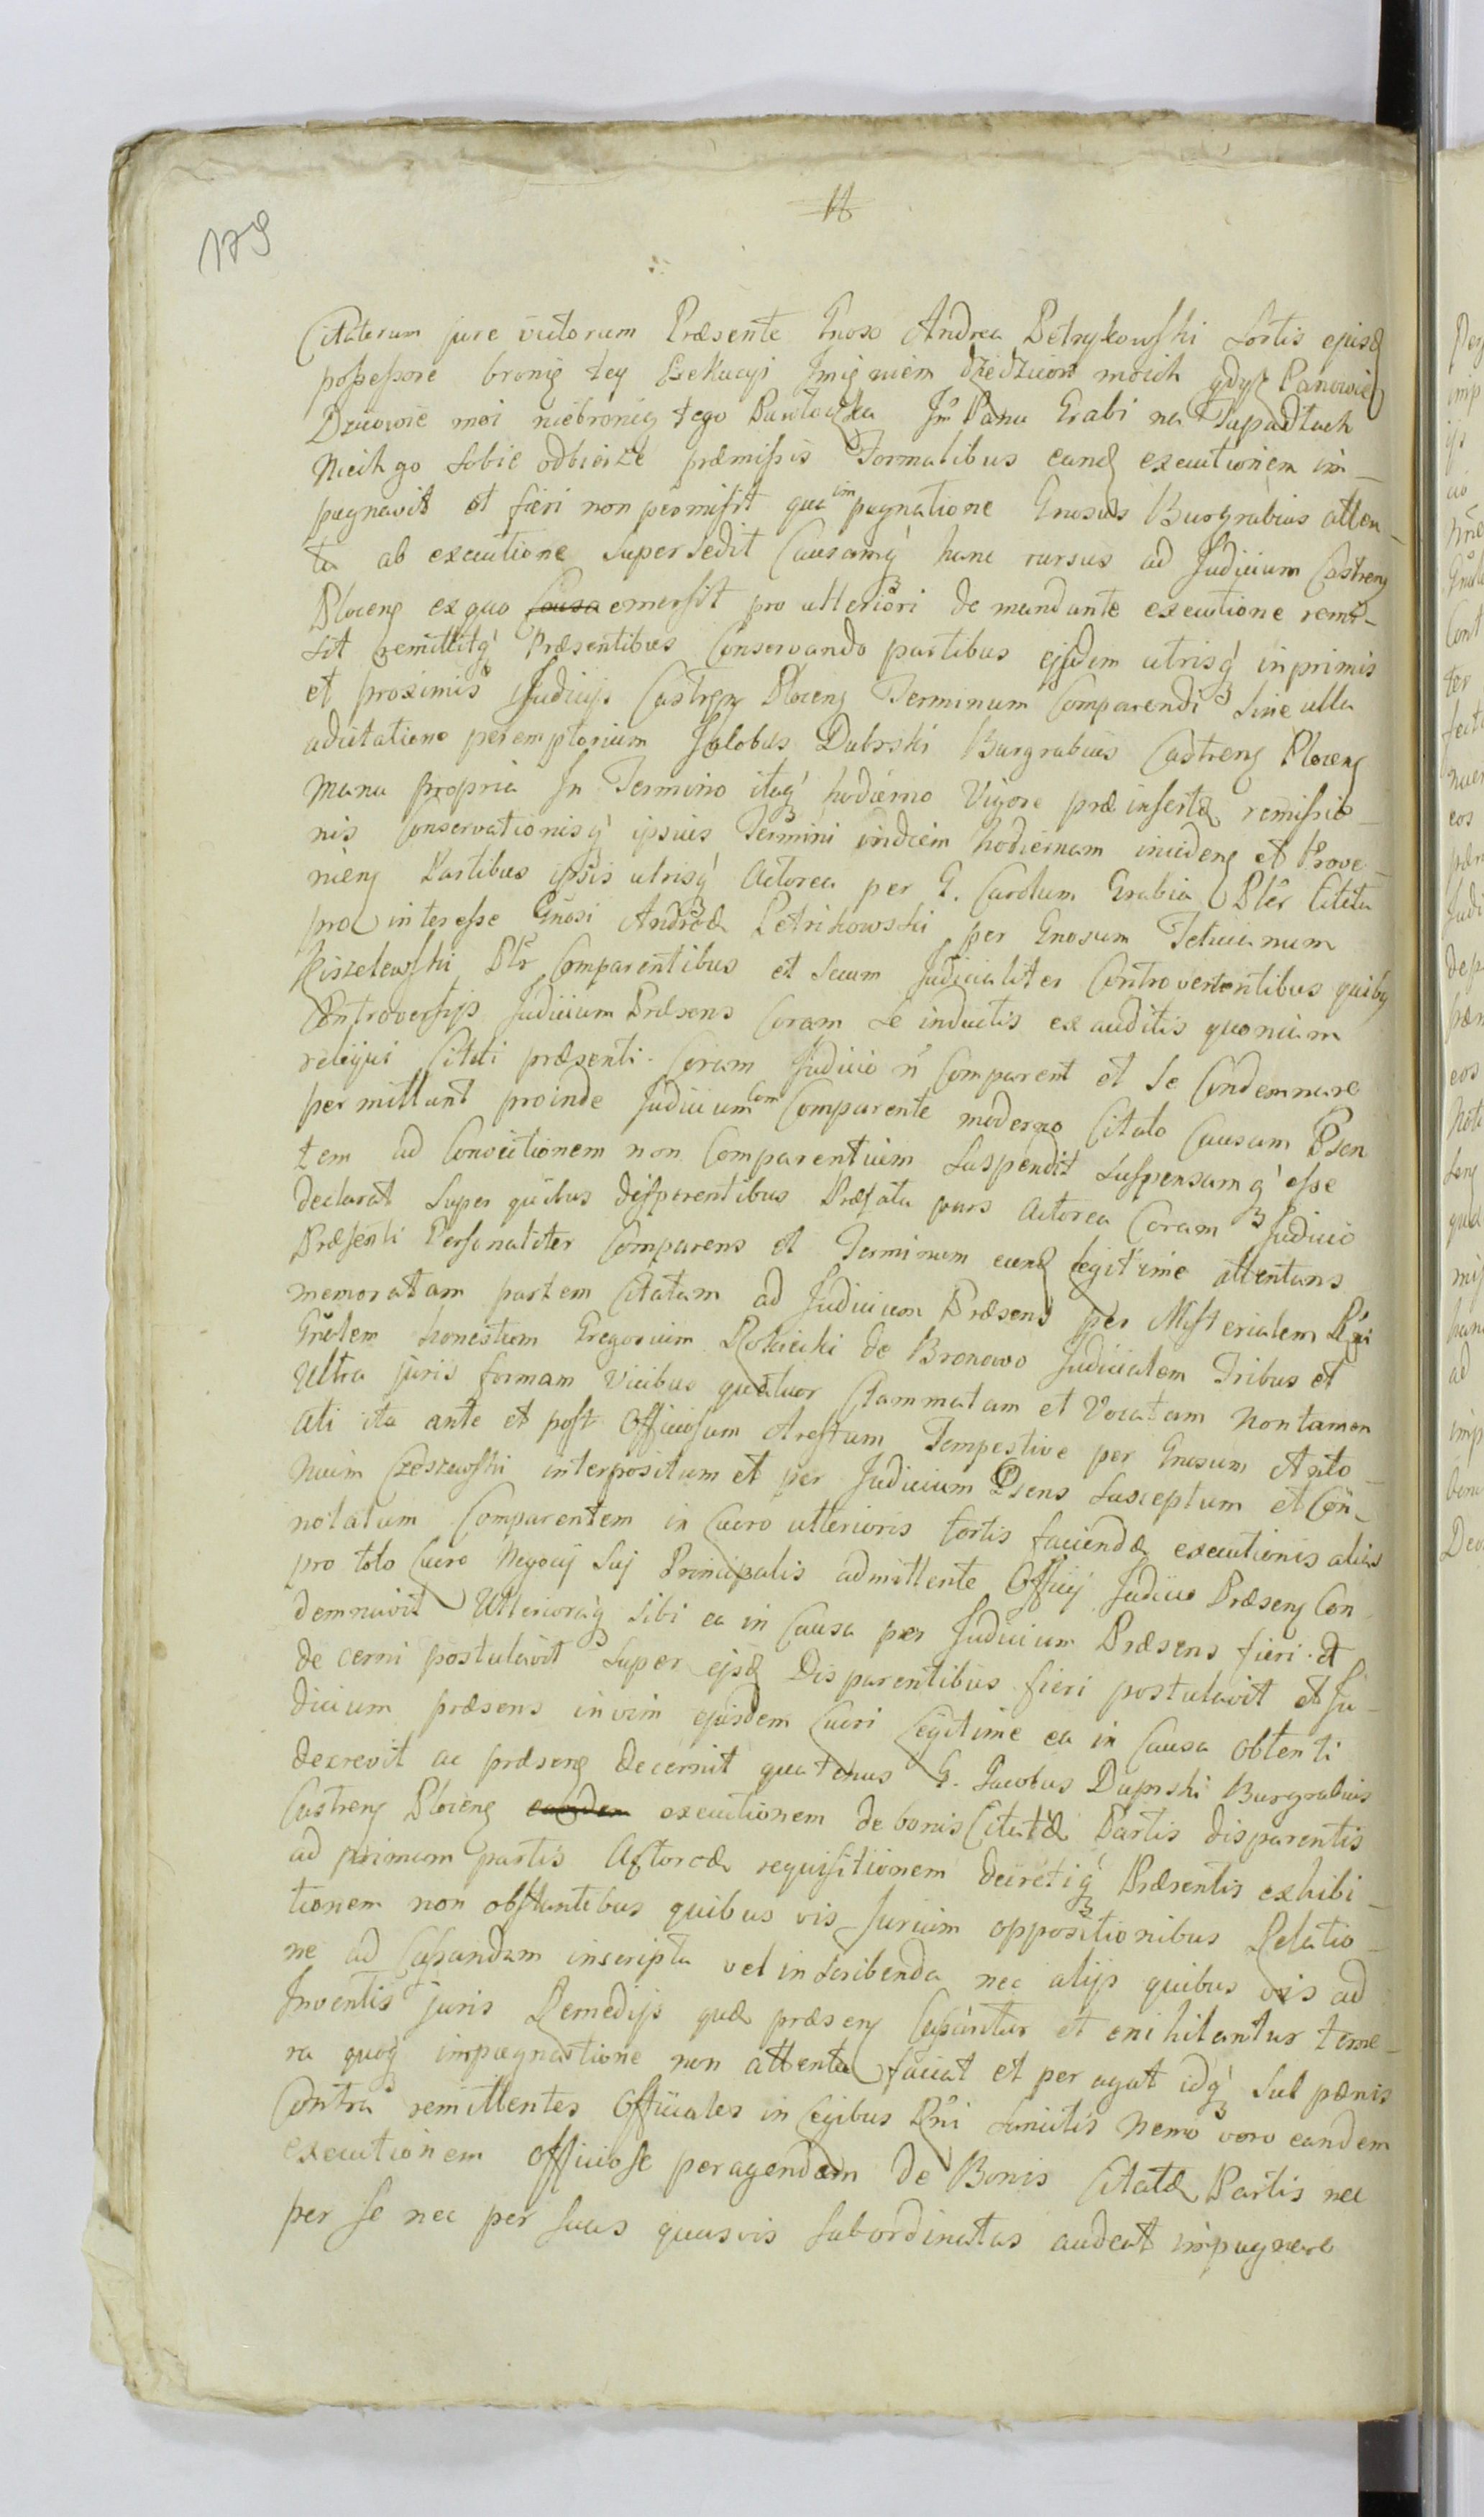 179
Citatorum jure victorum Præsente Gnoso Andrea Petrykowski Sortis ejusd
possessore bronię tey Exekucyi Imięniem dziedzicow moich gdysz Panowie
Dzicowie moi niebronią tego Pawłowska Jm Panu Grabi na Tupadłach
Niech go sobie odbierze præmissis Formalibus eand executionem im-
pugnavit et fieri non permisit qua impugnatione Gnosus Burgrabius atten-
ta ab executione supersedit Causamq hanc rursus ad Judicium Castren
Plocen ex quo emersit pro ulteriori demandante executione remi-
sit remittitq Præsentibus Conservando partibus ejsdem utrisq in primis
et proximis Judicijs Castren Plocen Terminum Comparendi Sine ulla
adcitatione peremptorium Jakobus Dubrski Burgrabius Castren Plocen
manu propria In Termino itaq hodierno Vigore præ insertæ remissio-
nis Conservationisq ipsius Termini in diem hodiernam inciden et Prove-
nien Partibus ipsis utrisq Actorea per G. Carolum Grabia Pltr Citita
pro interesse Gnosi Andreæ Petrikowski per Gnosum Felicianum
Kiszelewski Pltr Comparentibus et secum Judicialiter Controvertentibus quibq
Controversijs Judicium Præsens Coram se inductis ex auditis quoniam
reliqui Citati præsenti Coram Judicio n Comparent et se Condemnare
permittunt proinde Judicium Com Comparente moderno Citato Causam Præsen
tem ad Convictionem non Comparentium Suspendit suspensamq esse
declarat Super quibus disparentibus Præfata pars Actorea Coram Judicio
Præsenti Personaliter Comparens et Terminum eund legitime attentans
memoratam partem Citatam ad Judicium Præsens per Misterialem Rni
Gnrlem honestum Gregorium Rokicki de Bronowo Judicialem Tribus et
Ultra juris formam Vicibus quatuor Clammatam et Vocatam Non tamen
ati ita ante et post Officiosum Arestum Tempestive per Gnosum Anto-
nium Czeszewski interpositum et per Judicium Præsens Susceptum et Con-
notatum Comparentem in Lucro ulterioris fortis faciendæ executionis alias
pro toto Lucro Negocij Sui Principalis admittente Officij Judicio Præsen Con
demnavit Ulterioraq sibi ea in Causa per Judicium Præsens fieri et
decerni postulavit Super ejsd Disparentibus fieri postulavit et Ju-
dicium præsens in vim ejusdem Lucri legitime ea in Causa obtenti
decrevit ac præsen decernit quatenus G. Jacobus Duprski Burgrabius
Castren Plocen executionem de bonis Citatæ Partis disparentis
ad primam partis Actoreæ requisitionem decretiq Præsentis exhibi-
tionem non obstantibus quibus vis Jurium oppositionibus Relatio-
ne ad Cassandum inscripta vel inscribenda nec alijs quibus vis ad
Inventis juris Remedijs quæ præsen Cassantur et anihilantur teme-
ra quoq impugnatione non attenta faciat et per agat idq sub pænis
Contra remittentes Officiales in legibus Rni sancitis Nemo vero eandem
executionem officiose peragendam de Bonis Citatæ Partis nec
per se nec per suas quasvis subordinatas audeat impugnare